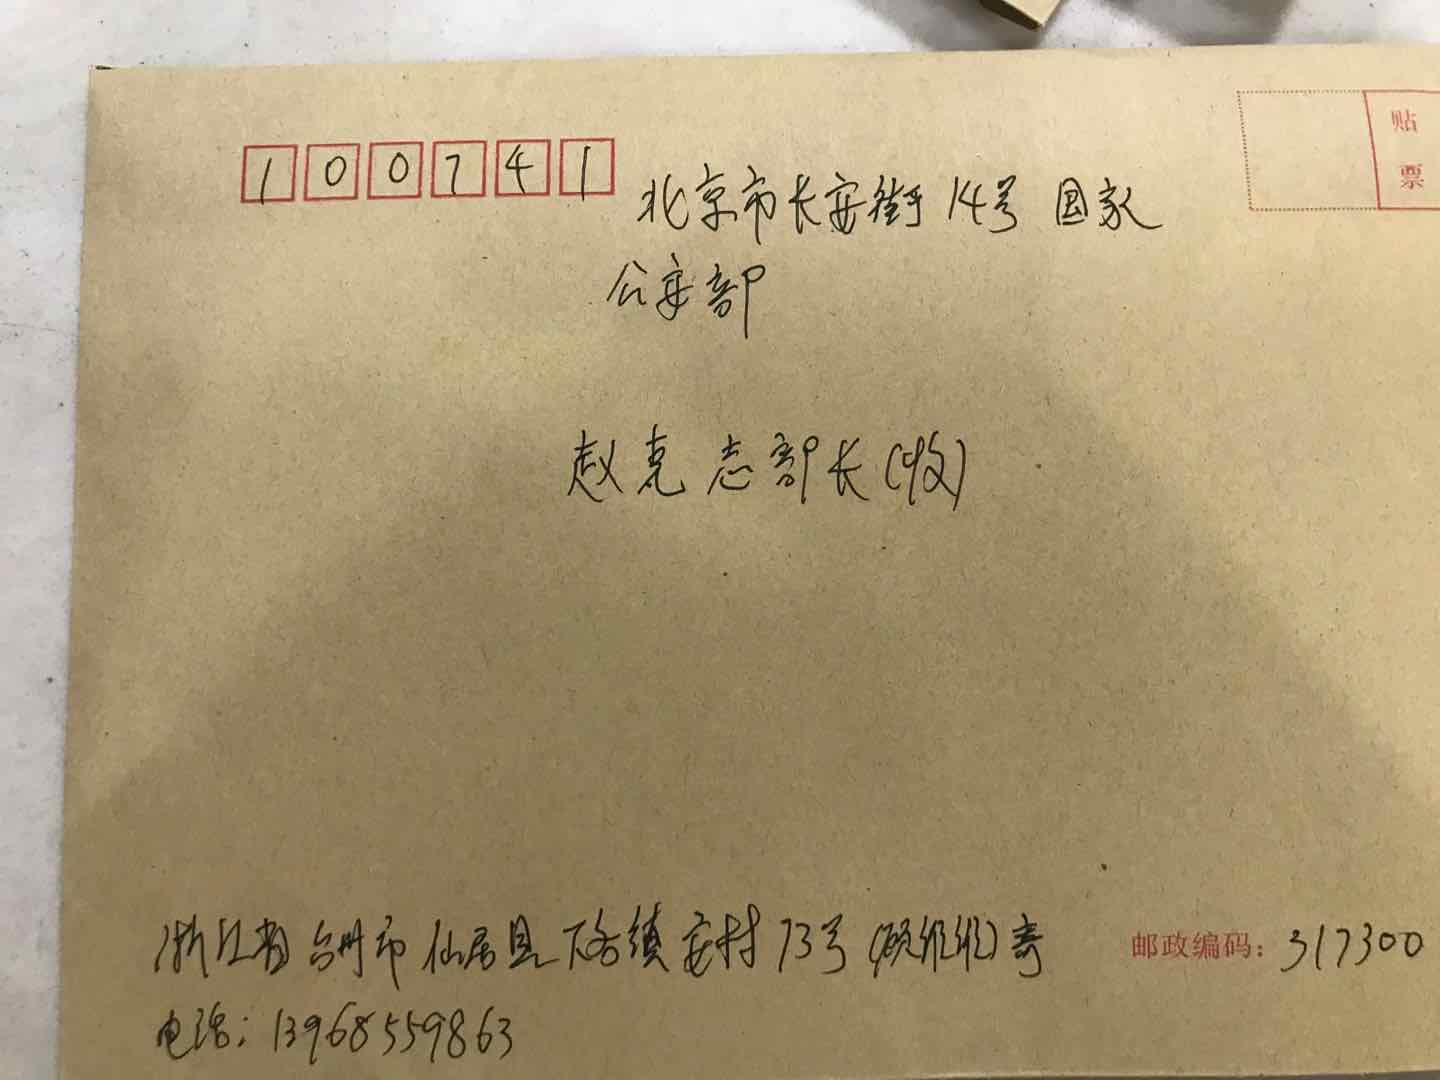 100741
北京市长安街14号 国家
公安部
贴
票
赵克志部长(收)
浙江省台州市仙居县下各镇安村73号(顾维维)寄
邮政编码: 317300
电话: 13968559863